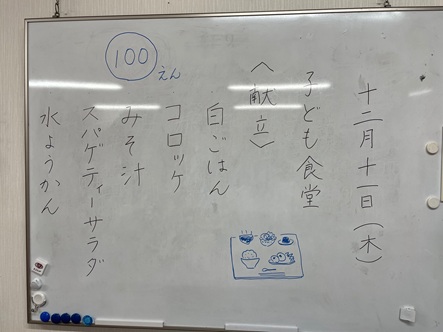 十二月十一日(木)
子ども食堂
〈献立〉
白ごはん
コロッケ
みそ汁
スパゲティーサラダ
水ようかん
100えん